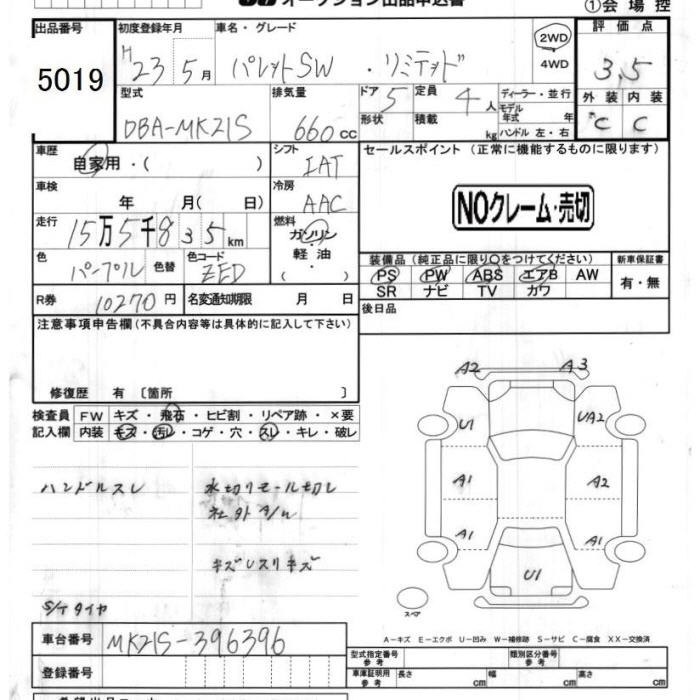 オークション出品申込書
①会場控
出品番号 初度登録年月 車名・グレード 評価点
5019 H 23 5月 パレットSW ・リミテッド 2WD 4WD 3.5
型式 排気量 ドア 5 定員 4人 ディーラー・並行 外装 内装
DBA-MK21S 660cc 形状 積載 kg モデル年式 年 ハンドル 左・右 C C
車歴 自家用・( ) シフト IAT セールスポイント (正常に機能するものに限ります)
車検 年 月( 日) 冷房 AAC
NOクレーム・売切
走行 15万5千835km 燃料 ガソリン・軽油・( )
色 パープル 色替 色コード ZED 装備品 (純正品に限り○をつけてください) 新車保証書
PS PW ABS エアB AW 有・無
R券 10270円 名変通知期限 月 日 SR ナビ TV カワ
注意事項申告欄(不具合内容等は具体的に記入して下さい) 後日品
修復歴 有〔箇所 〕
検査員 FW キズ・飛石・ヒビ割・リペア跡・×要
記入欄 内装 キズ・汚レ・コゲ・穴・スレ・キレ・破レ
A2 A3
U1 UA2
A1 A2
A1 A1
U1
スペア
ハンドルスレ 水切りモール切レ
キズレスリキズ
S/Tタイヤ
A-キズ E-エクボ U-凹み W-補修跡 S-サビ C-腐食 XX-交換済
車台番号 MK21S-396396
型式指定番号 参考 類別区分番号 参考
登録番号 車庫証明用 参考 長さ cm 幅 cm 高さ cm